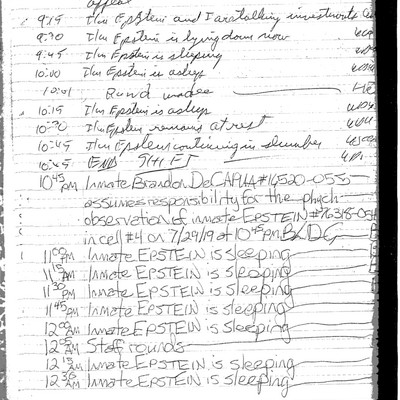 appeal
9:15 I/m Epstein and I are talking investments
9:30 I/m Epstein is lying down now
9:45 I/m Epstein is sleeping
10:00 I/m Epstein is asleep
10:01 Round made
10:15 I/m Epstein is asleep
10:30 I/m Epstein remains at rest
10:45 I/m Epstein continuing in slumber
10:45 END SHIFT
10:45 PM Inmate Brandon DeCAPUA #14520-055
assumes responsibility for the phych
observation of inmate EPSTEIN #76318-054
in cell #4 on 7/29/19 at 10:45 PM. BLDG
11:00 PM Inmate EPSTEIN is sleeping
11:15 PM Inmate EPSTEIN is sleeping
11:30 PM Inmate EPSTEIN is sleeping
11:45 PM Inmate EPSTEIN is sleeping
12:00 AM Inmate EPSTEIN is sleeping
12:05 AM Staff rounds
12:15 AM Inmate EPSTEIN is sleeping
12:30 AM Inmate EPSTEIN is sleeping